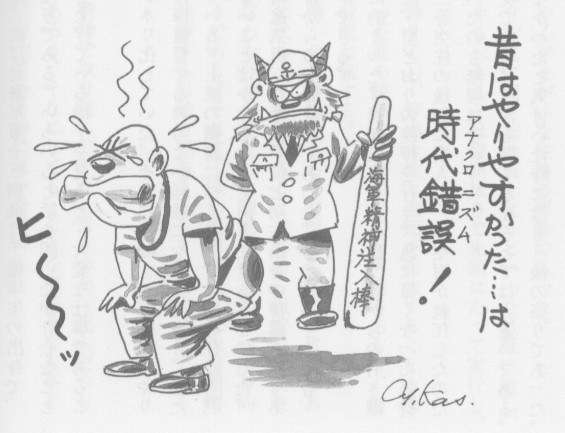 昔はやりやすかった…は
アナクロニズム
時代錯誤!
海軍精神注入棒
ヒ〜〜ッ